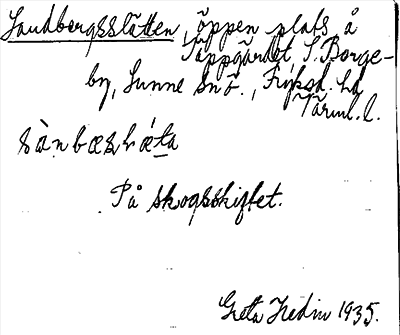 Sandbergsslätten, öppen plats å
Täppgärdet, S. Borge-
by, Sunne snö., Fryksd. hd,
Värml. l.
sànbæs
På skogsskiftet.
Greta Hedin 1935.